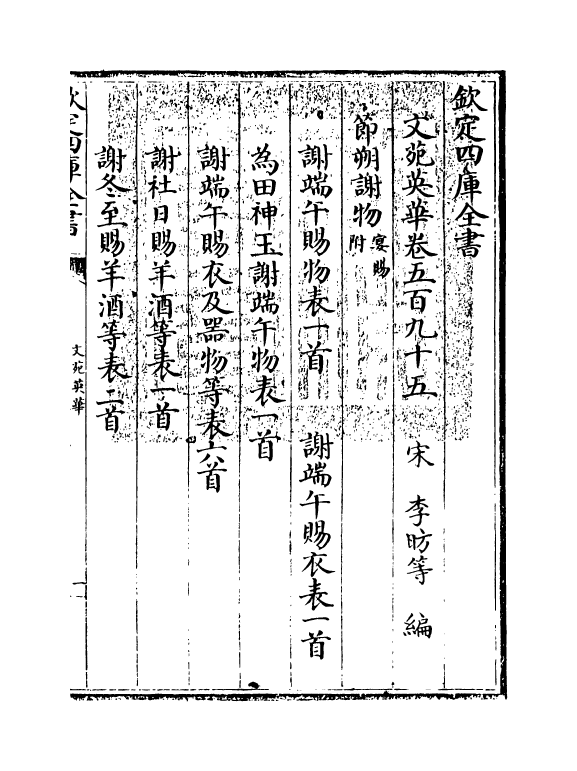 欽定四庫全書
文苑英華卷五百九十五　宋　李昉等　編
節朔謝物宴賜附
謝端午賜物表十首　謝端午賜衣表一首
為田神玉謝端午物表一首
謝端午賜衣及器物等表六首
謝社日賜羊酒等表一首
謝冬至賜羊酒等表二首
欽定四庫全書
文苑英華
一